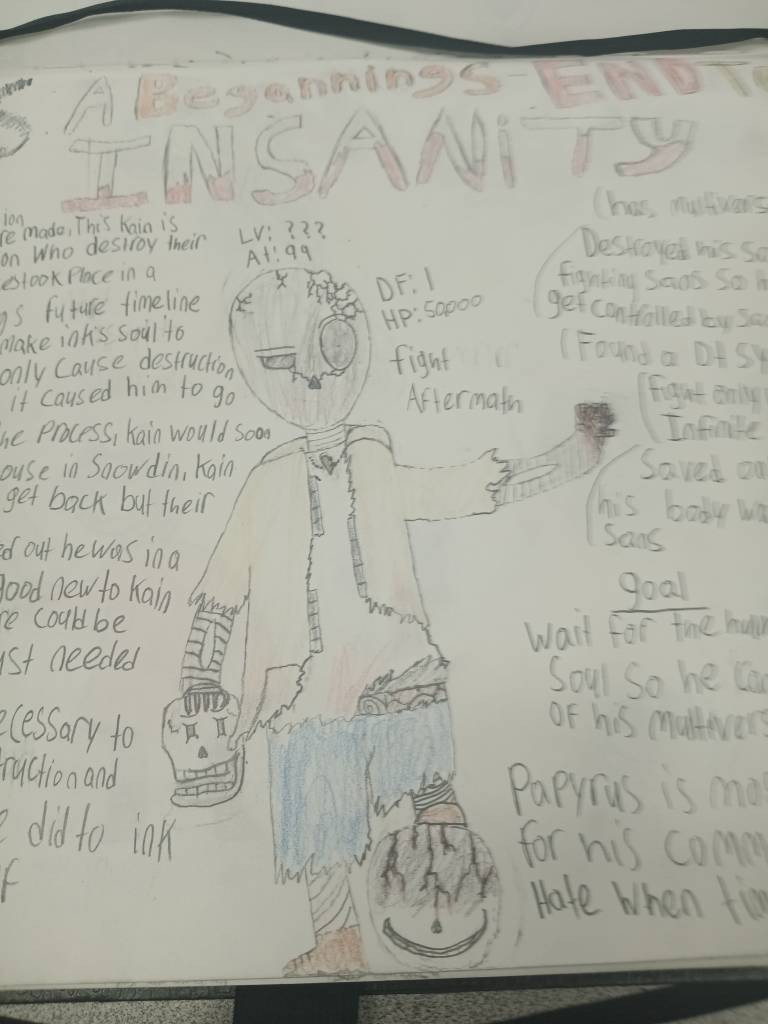 A Begannings-END To
INSANiTY
ion
re made, This Kain is
on Who destroy their
estook Place in a
gs future timeline
make ink's soul to
only Cause destruction
it caused him to go
he Process, Kain would soon
ouse in Snowdin, Kain
get back but their
ed out he was in a
good new to Kain
re could be
ust needed
ecessary to
truction and
e did to ink
f
LV: ???
At: 99
DF: 1
HP: 50000
fight
Aftermath
(has multivers
Destroyed his so
fighting Sans so h
get controlled by Sa
(Found a Dt Sy
(fight only
Infinite
Saved on
his body wa
Sans
goal
Wait for the hum
Soul so he can
OF his multivers
Papyrus is mos
for his comm
Hate When tim